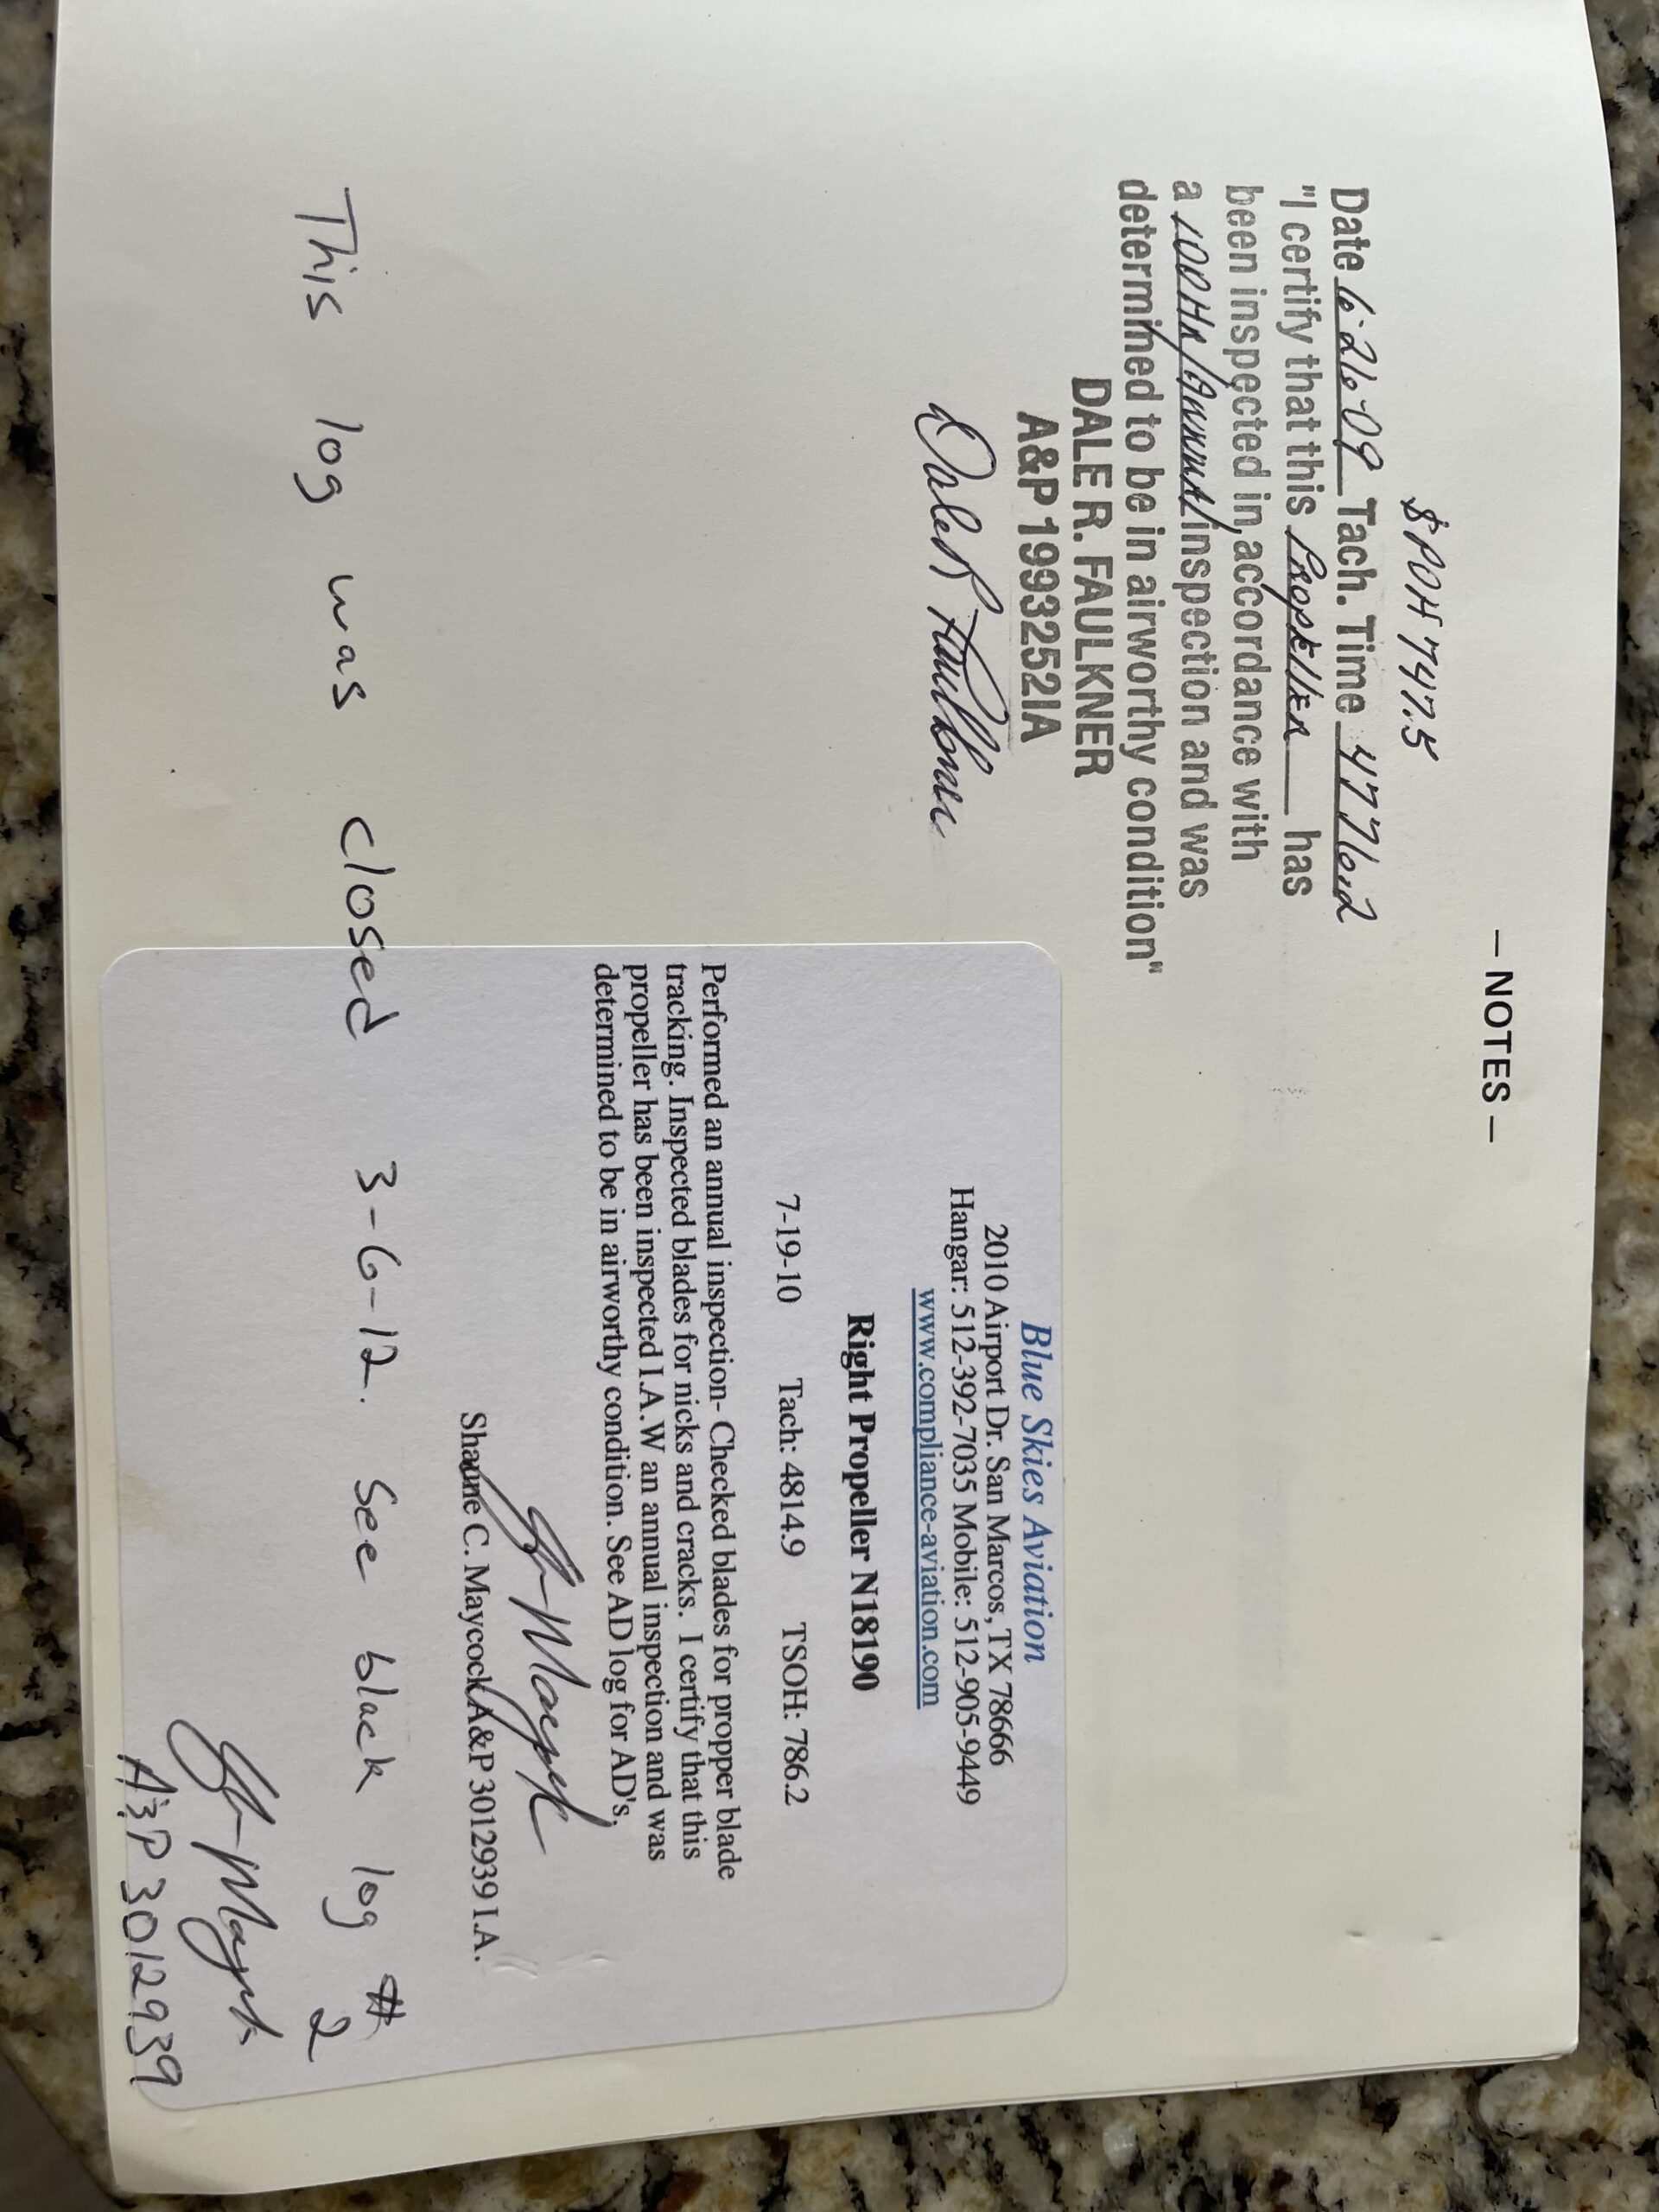 — NOTES —
SPOH 747.5
Date 6-26-09 Tach. Time 4776.2
"I certify that this Propeller has
been inspected in accordance with
a 100HR/Annual inspection and was
determined to be in airworthy condition"
DALE R. FAULKNER
A&P 1993252IA
Dale R Faulkner
Blue Skies Aviation
2010 Airport Dr. San Marcos, TX 78666
Hangar: 512-392-7035 Mobile: 512-905-9449
www.compliance-aviation.com
Right Propeller N18190
7-19-10 Tach: 4814.9 TSOH: 786.2
Performed an annual inspection- Checked blades for propper blade
tracking. Inspected blades for nicks and cracks. I certify that this
propeller has been inspected I.A.W an annual inspection and was
determined to be in airworthy condition. See AD log for AD's.
Shaune C. Maycock A&P 3012939 I.A.
This log was closed 3-6-12. See black log #
2
A&P 3012939